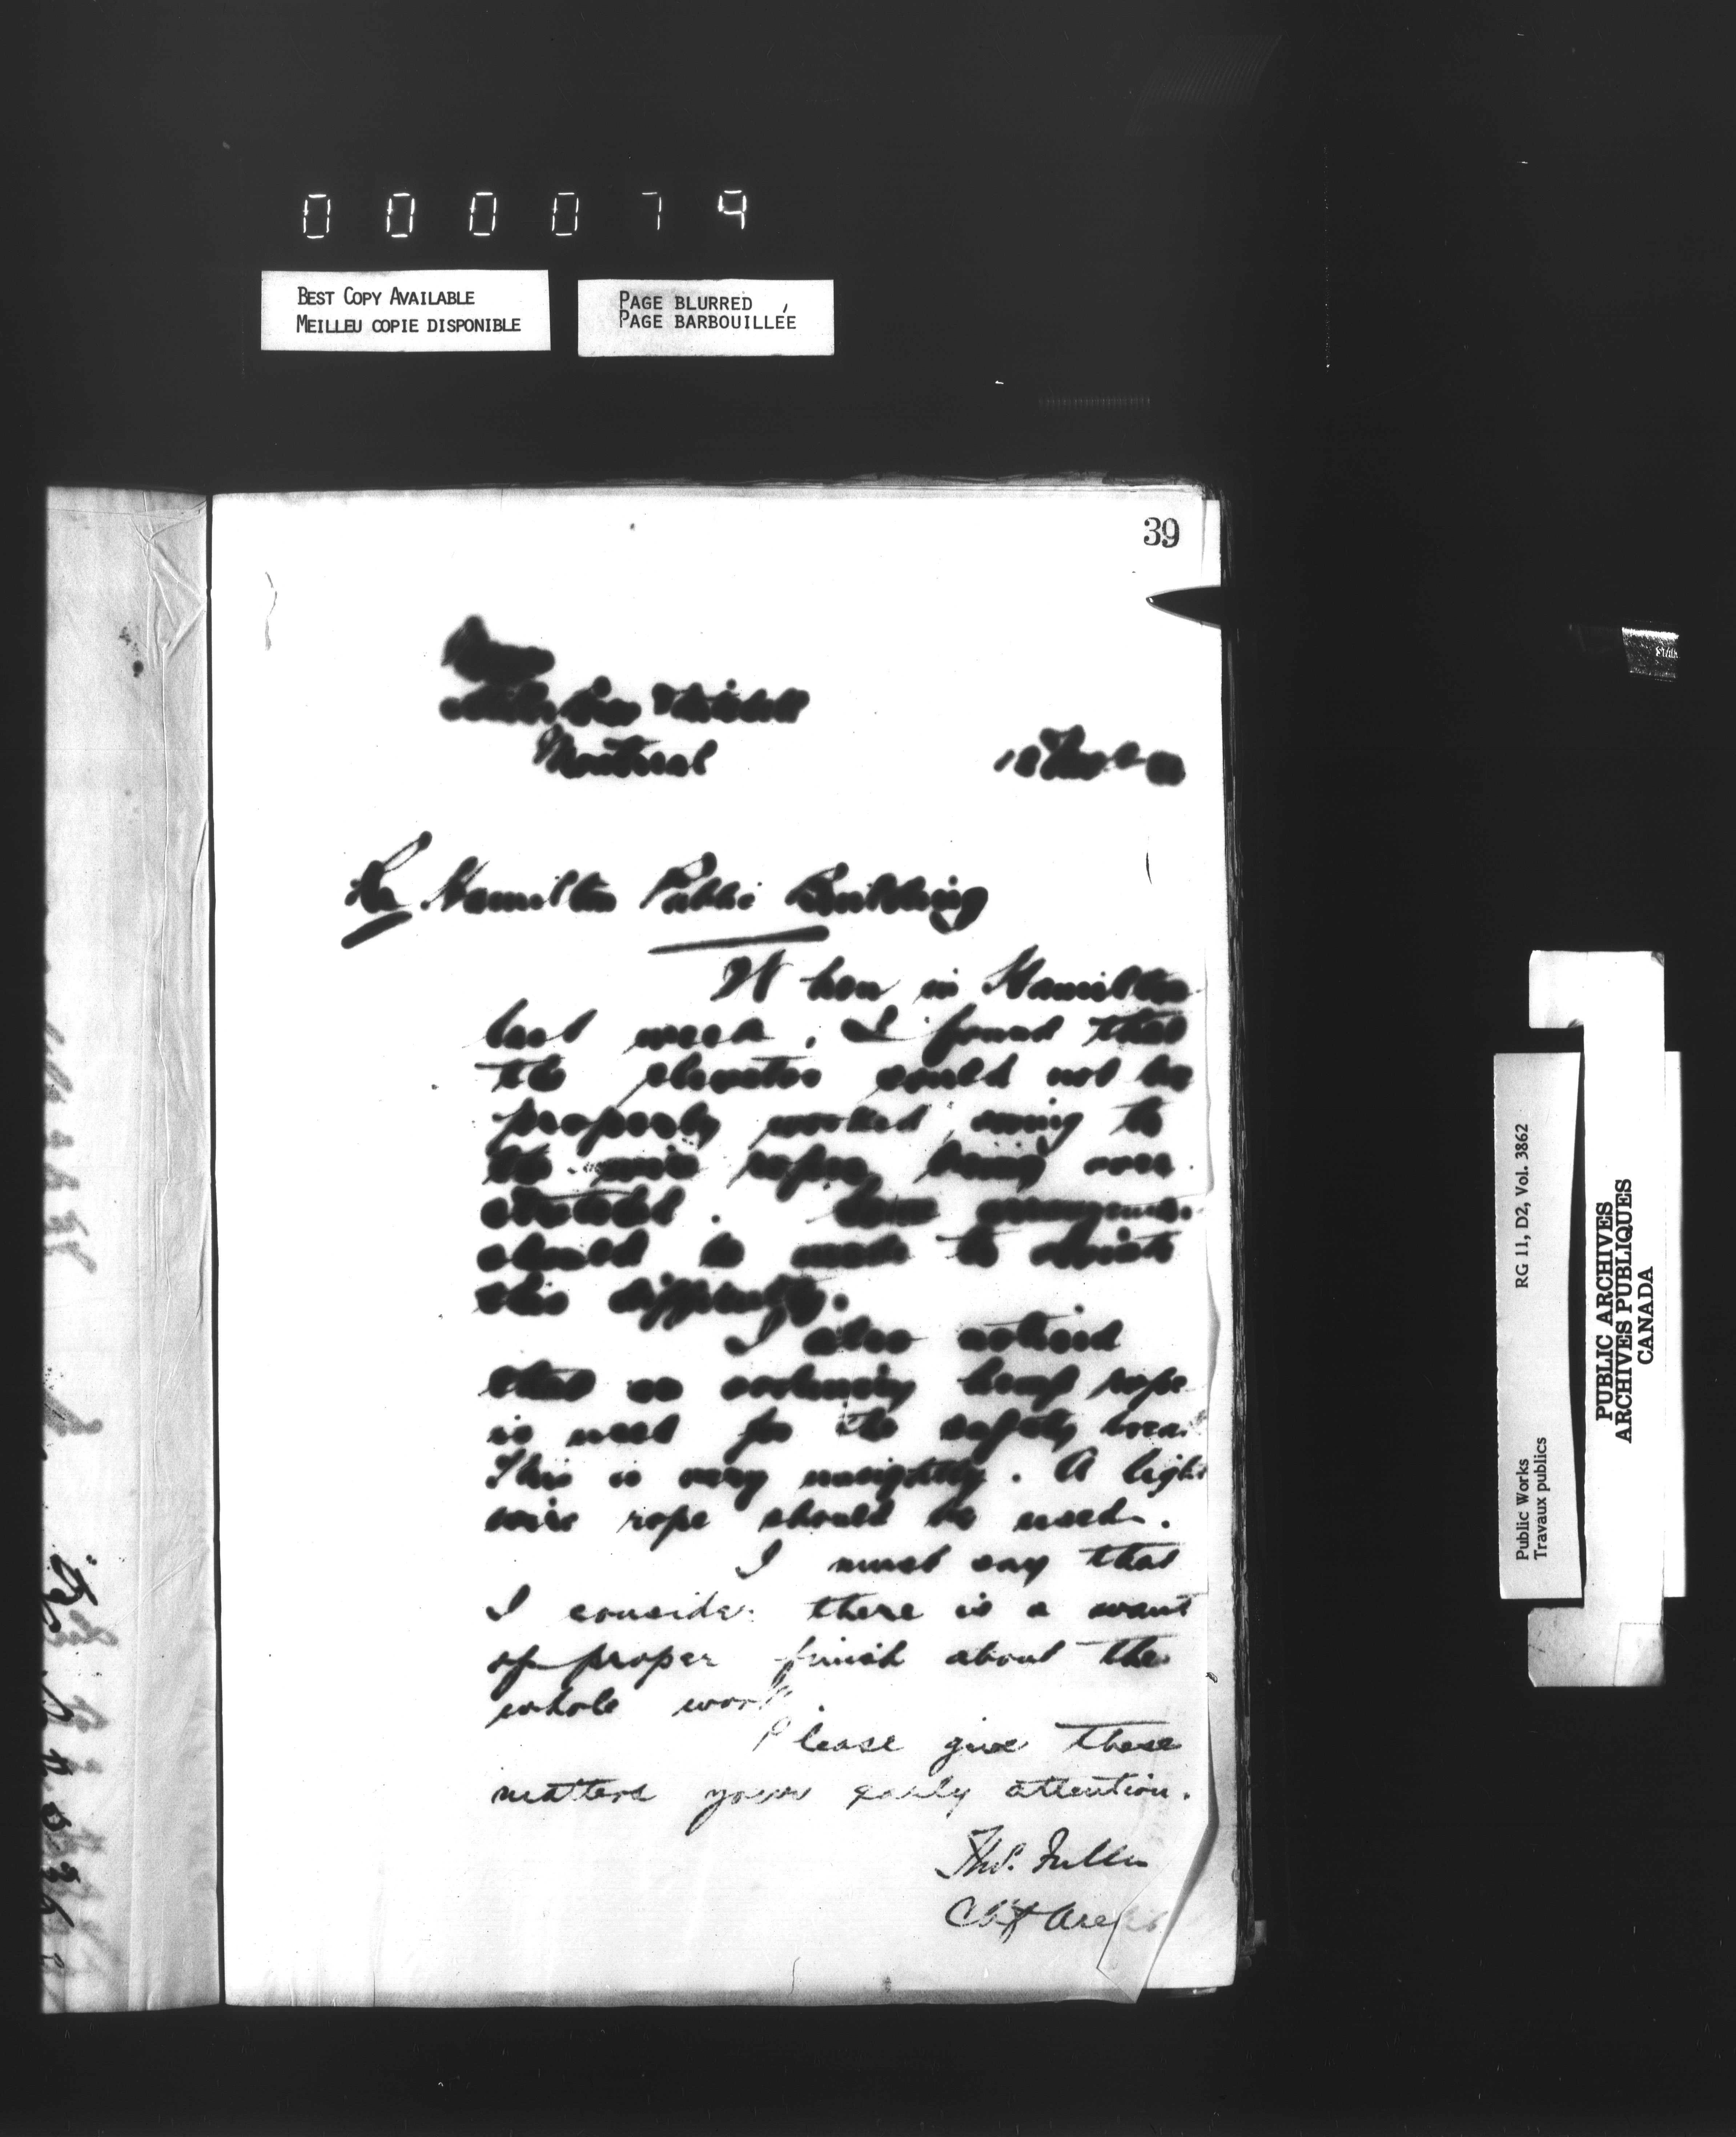 000079
BEST COPY AVAILABLE
MEILLEU COPIE DISPONIBLE
PAGE BLURRED
PAGE BARBOUILLÉE
39
Montreal
Re Hamilton Public Building
When in Hamilton
last week, I found that
the elevator could not be
properly worked, owing to
the wire ropes being over
stretched. Some arrangement
should be made to obviate
this difficulty.
I also noticed
that an ordinary hemp rope
is used for the safety
This is very unsightly. A light
wire rope should be used.
I must say that
I consider there is a want
of proper finish about the
whole work
Please give these
matters your early attention.
Thos. Fuller
Chf Arc
Public Works
Travaux publics
RG 11, D2, Vol. 3862
PUBLIC ARCHIVES
ARCHIVES PUBLIQUES
CANADA